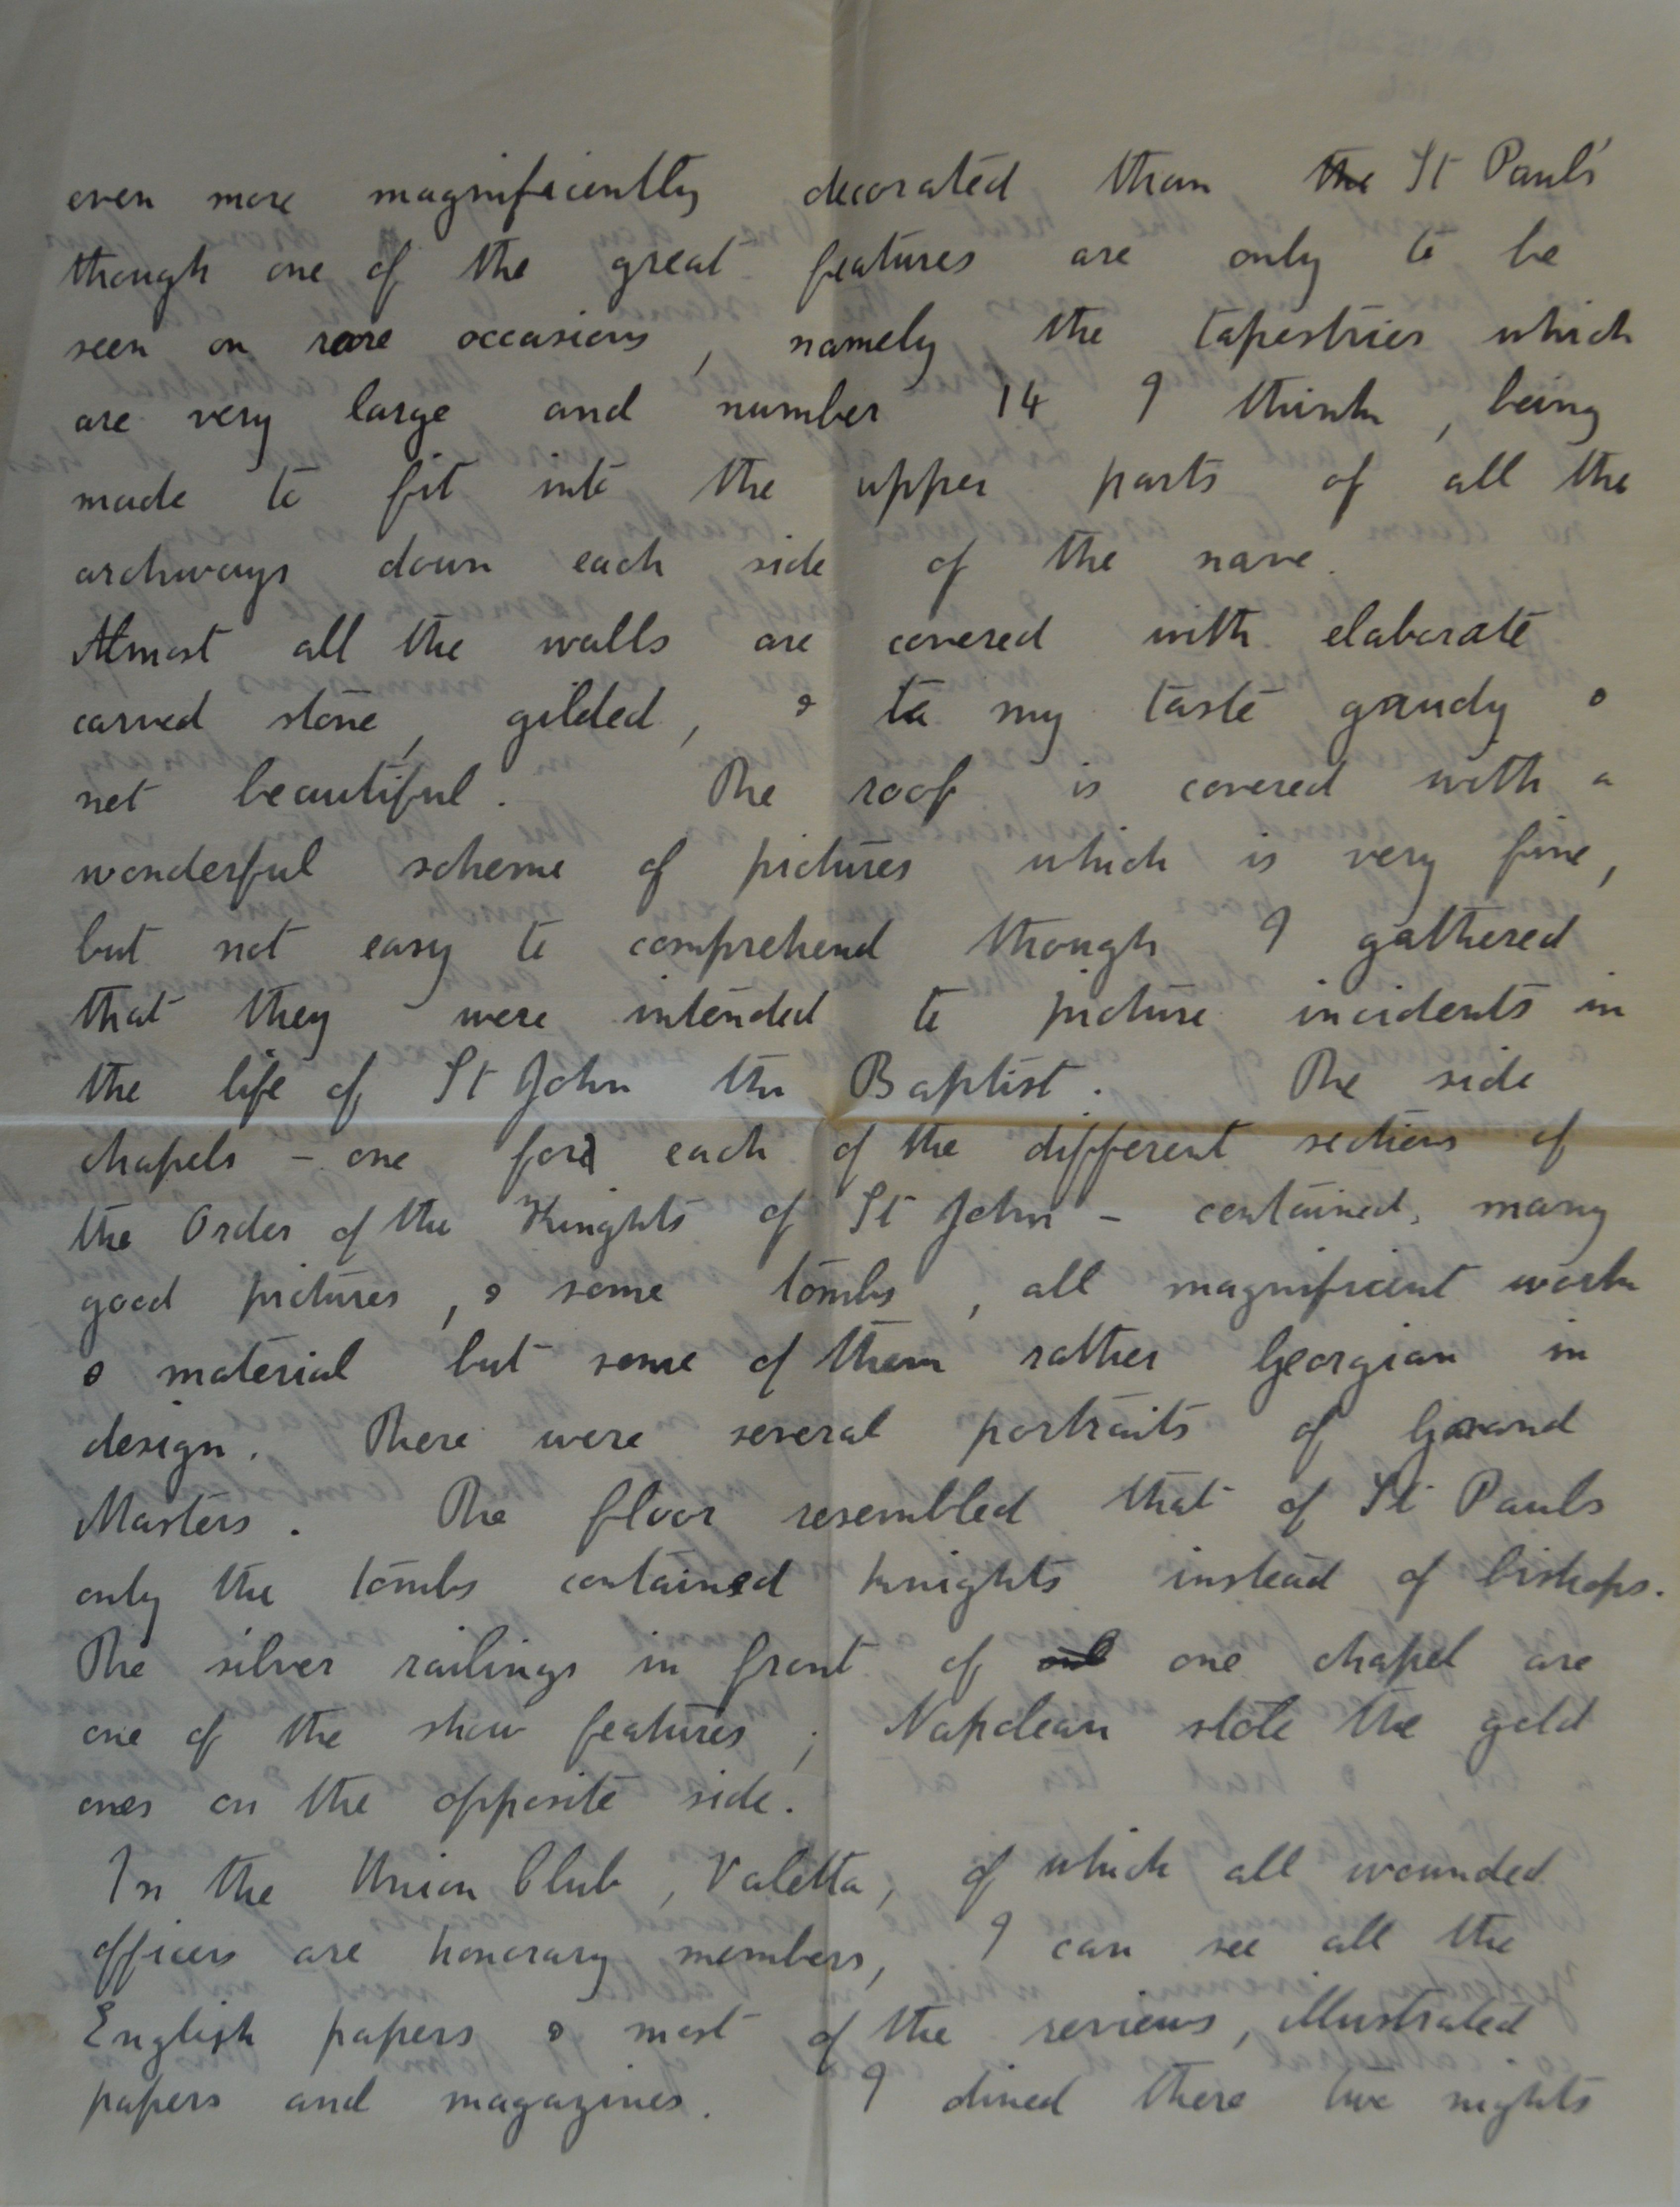 even more magnificently decorated than the St Pauls'
though one of the great features are only to be
seen on rare occasions, namely the tapestries which
are very large and number 14 I think, being
made to fit into the upper parts of all the
archways down each side of the nave.
Almost all the walls are covered with elaborate
carved stone, gilded, & to my taste gaudy &
not beautiful. The roof is covered with a
wonderful scheme of pictures which is very fine,
but not easy to comprehend though I gathered
that they were intended to picture incidents in
the life of St John the Baptist. The side
chapels – one for each of the different sections of
the Order of the Knights of St John – contained, many
good pictures, & some tombs, all magnificent work
& material but some of them rather Georgian in
design. There were several portraits of Grand
Masters. The floor resembled that of St Pauls
only the tombs contained knights instead of bishops.
The silver railings in front of one chapel are
one of the show features; Napolean stole the gold
ones on the opposite side.
In the Union Club, Valetta, of which all wounded
officers are honorary members, I can see all the
English papers & most of the reviews, illustrated
papers and magazines. I dined there two nights